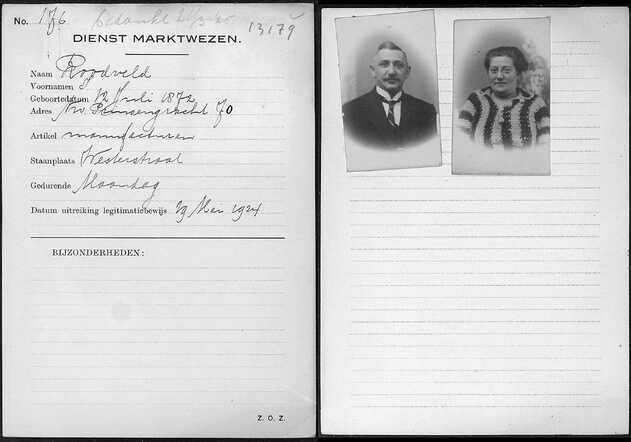 No. 176 Bedankt
13179
DIENST MARKTWEZEN.
Naam Roodveld
Voornamen J
Geboortedatum 12 Juli 1872
Adres Nw. Prinsengracht 70
Artikel manufacturen
Staanplaats Westerstraat
Gedurende Maandag
Datum uitreiking legitimatiebewijs 29 Mei 1924
BIJZONDERHEDEN:
Z. O. Z.